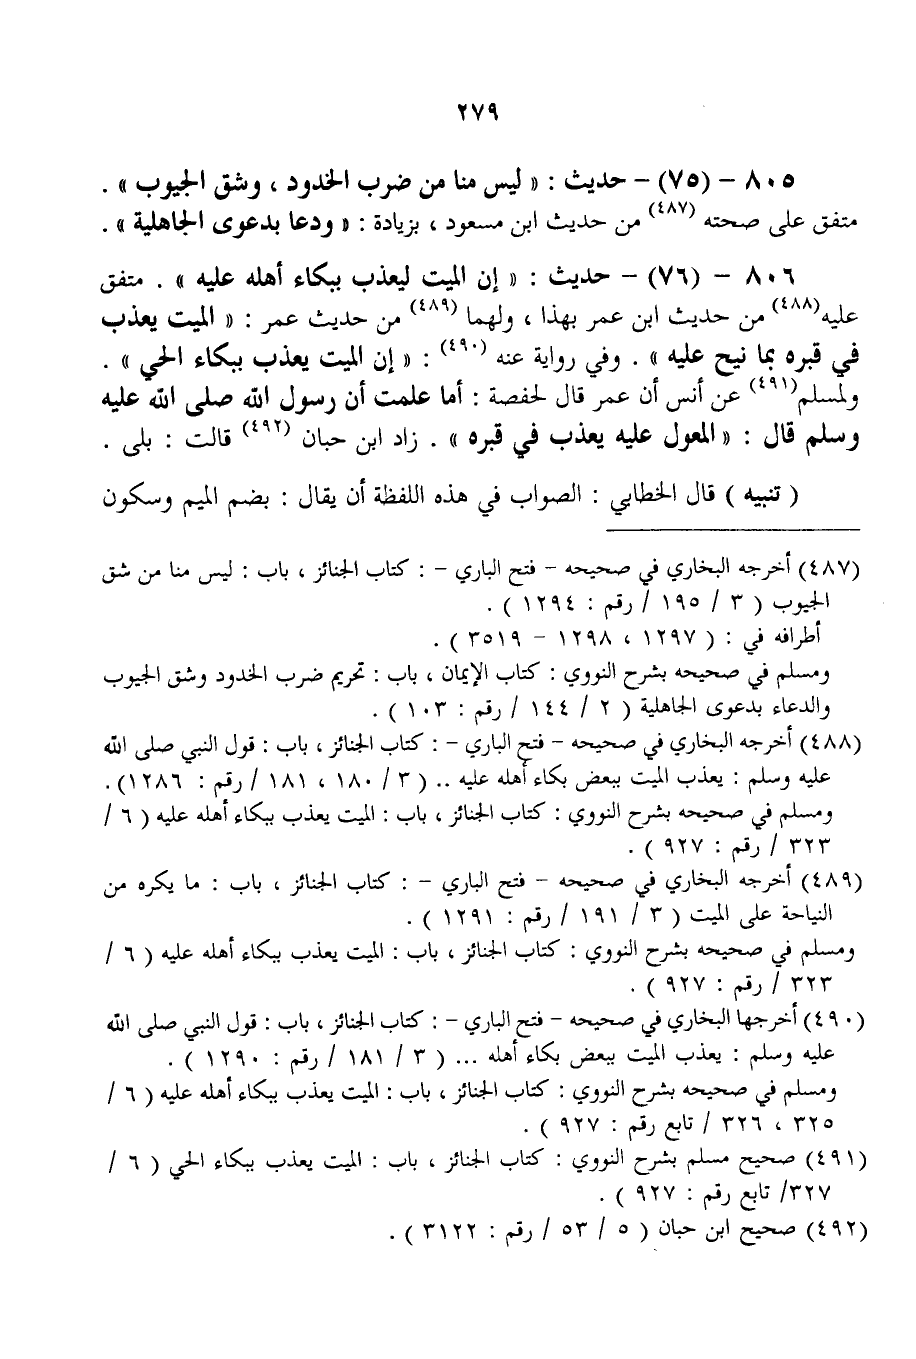 ٢٧٩
٨٠٥ – (٧٥) – حديث : « ليس منا من ضرب الخدود ، وشق الجيوب » .
متفق على صحته (٤٨٧) من حديث ابن مسعود ، بزيادة : « ودعا بدعوى الجاهلية » .
٨٠٦ – (٧٦) – حديث : « إن الميت ليعذب ببكاء أهله عليه » . متفق
عليه(٤٨٨) من حديث ابن عمر بهذا ، ولهما (٤٨٩) من حديث عمر : « الميت يعذب
في قبره بما نيح عليه » . وفي رواية عنه (٤٩٠) : « إن الميت يعذب ببكاء الحي » .
ولمسلم(٤٩١) عن أنس أن عمر قال لحفصة : أما علمت أن رسول الله صلى الله عليه
وسلم قال : « المعول عليه يعذب في قبره » . زاد ابن حبان (٤٩٢) قالت : بلى .
( تنبيه ) قال الخطابي : الصواب في هذه اللفظة أن يقال : بضم الميم وسكون
(٤٨٧) أخرجه البخاري في صحيحه – فتح الباري – : كتاب الجنائز ، باب : ليس منا من شق
الجيوب ( ٣ / ١٩٥ / رقم : ١٢٩٤ ) .
أطرافه في : ( ١٢٩٧ ، ١٢٩٨ – ٣٥١٩ ) .
ومسلم في صحيحه بشرح النووي : كتاب الإيمان ، باب : تحريم ضرب الخدود وشق الجيوب
والدعاء بدعوى الجاهلية ( ٢ / ١٤٤ / رقم : ١٠٣ ) .
(٤٨٨) أخرجه البخاري في صحيحه – فتح الباري – : كتاب الجنائز ، باب : قول النبي صلى الله
عليه وسلم : يعذب الميت ببعض بكاء أهله عليه .. ( ٣ / ١٨٠ ، ١٨١ / رقم : ١٢٨٦) .
ومسلم في صحيحه بشرح النووي : كتاب الجنائز ، باب : الميت يعذب ببكاء أهله عليه ( ٦ /
٣٢٣ / رقم : ٩٢٧ ) .
(٤٨٩) أخرجه البخاري في صحيحه – فتح الباري – : كتاب الجنائز ، باب : ما يكره من
النياحة على الميت ( ٣ / ١٩١ / رقم : ١٢٩١ ) .
ومسلم في صحيحه بشرح النووي : كتاب الجنائز ، باب : الميت يعذب ببكاء أهله عليه ( ٦ /
٣٢٣ / رقم : ٩٢٧ ) .
(٤٩٠) أخرجها البخاري في صحيحه – فتح الباري – : كتاب الجنائز ، باب : قول النبي صلى الله
عليه وسلم : يعذب الميت ببعض بكاء أهله ... ( ٣ / ١٨١ / رقم : ١٢٩٠ ) .
ومسلم في صحيحه بشرح النووي : كتاب الجنائز ، باب : الميت يعذب ببكاء أهله عليه ( ٦ /
٣٢٥ ، ٣٢٦ / تابع رقم : ٩٢٧ ) .
(٤٩١) صحيح مسلم بشرح النووي : كتاب الجنائز ، باب : الميت يعذب ببكاء الحي ( ٦ /
٣٢٧/ تابع رقم : ٩٢٧ ) .
(٤٩٢) صحيح ابن حبان ( ٥ / ٥٣ / رقم : ٣١٢٢ ) .